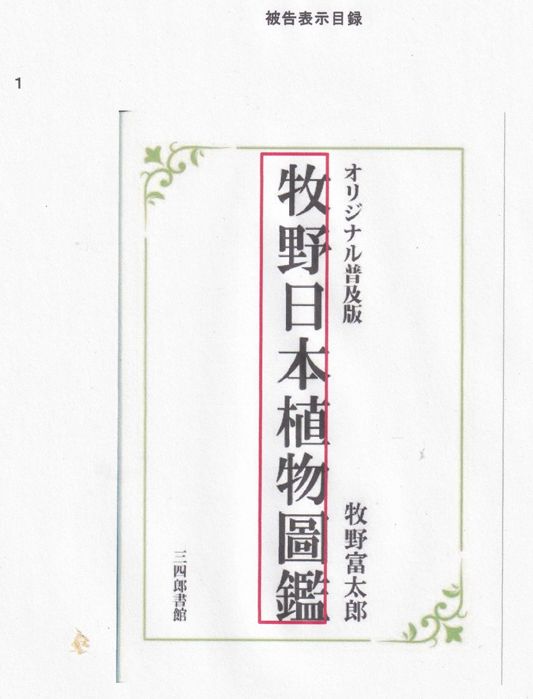 被告表示目録
1
オリジナル普及版
牧野富太郎
牧野日本植物圖鑑
三四郎書館